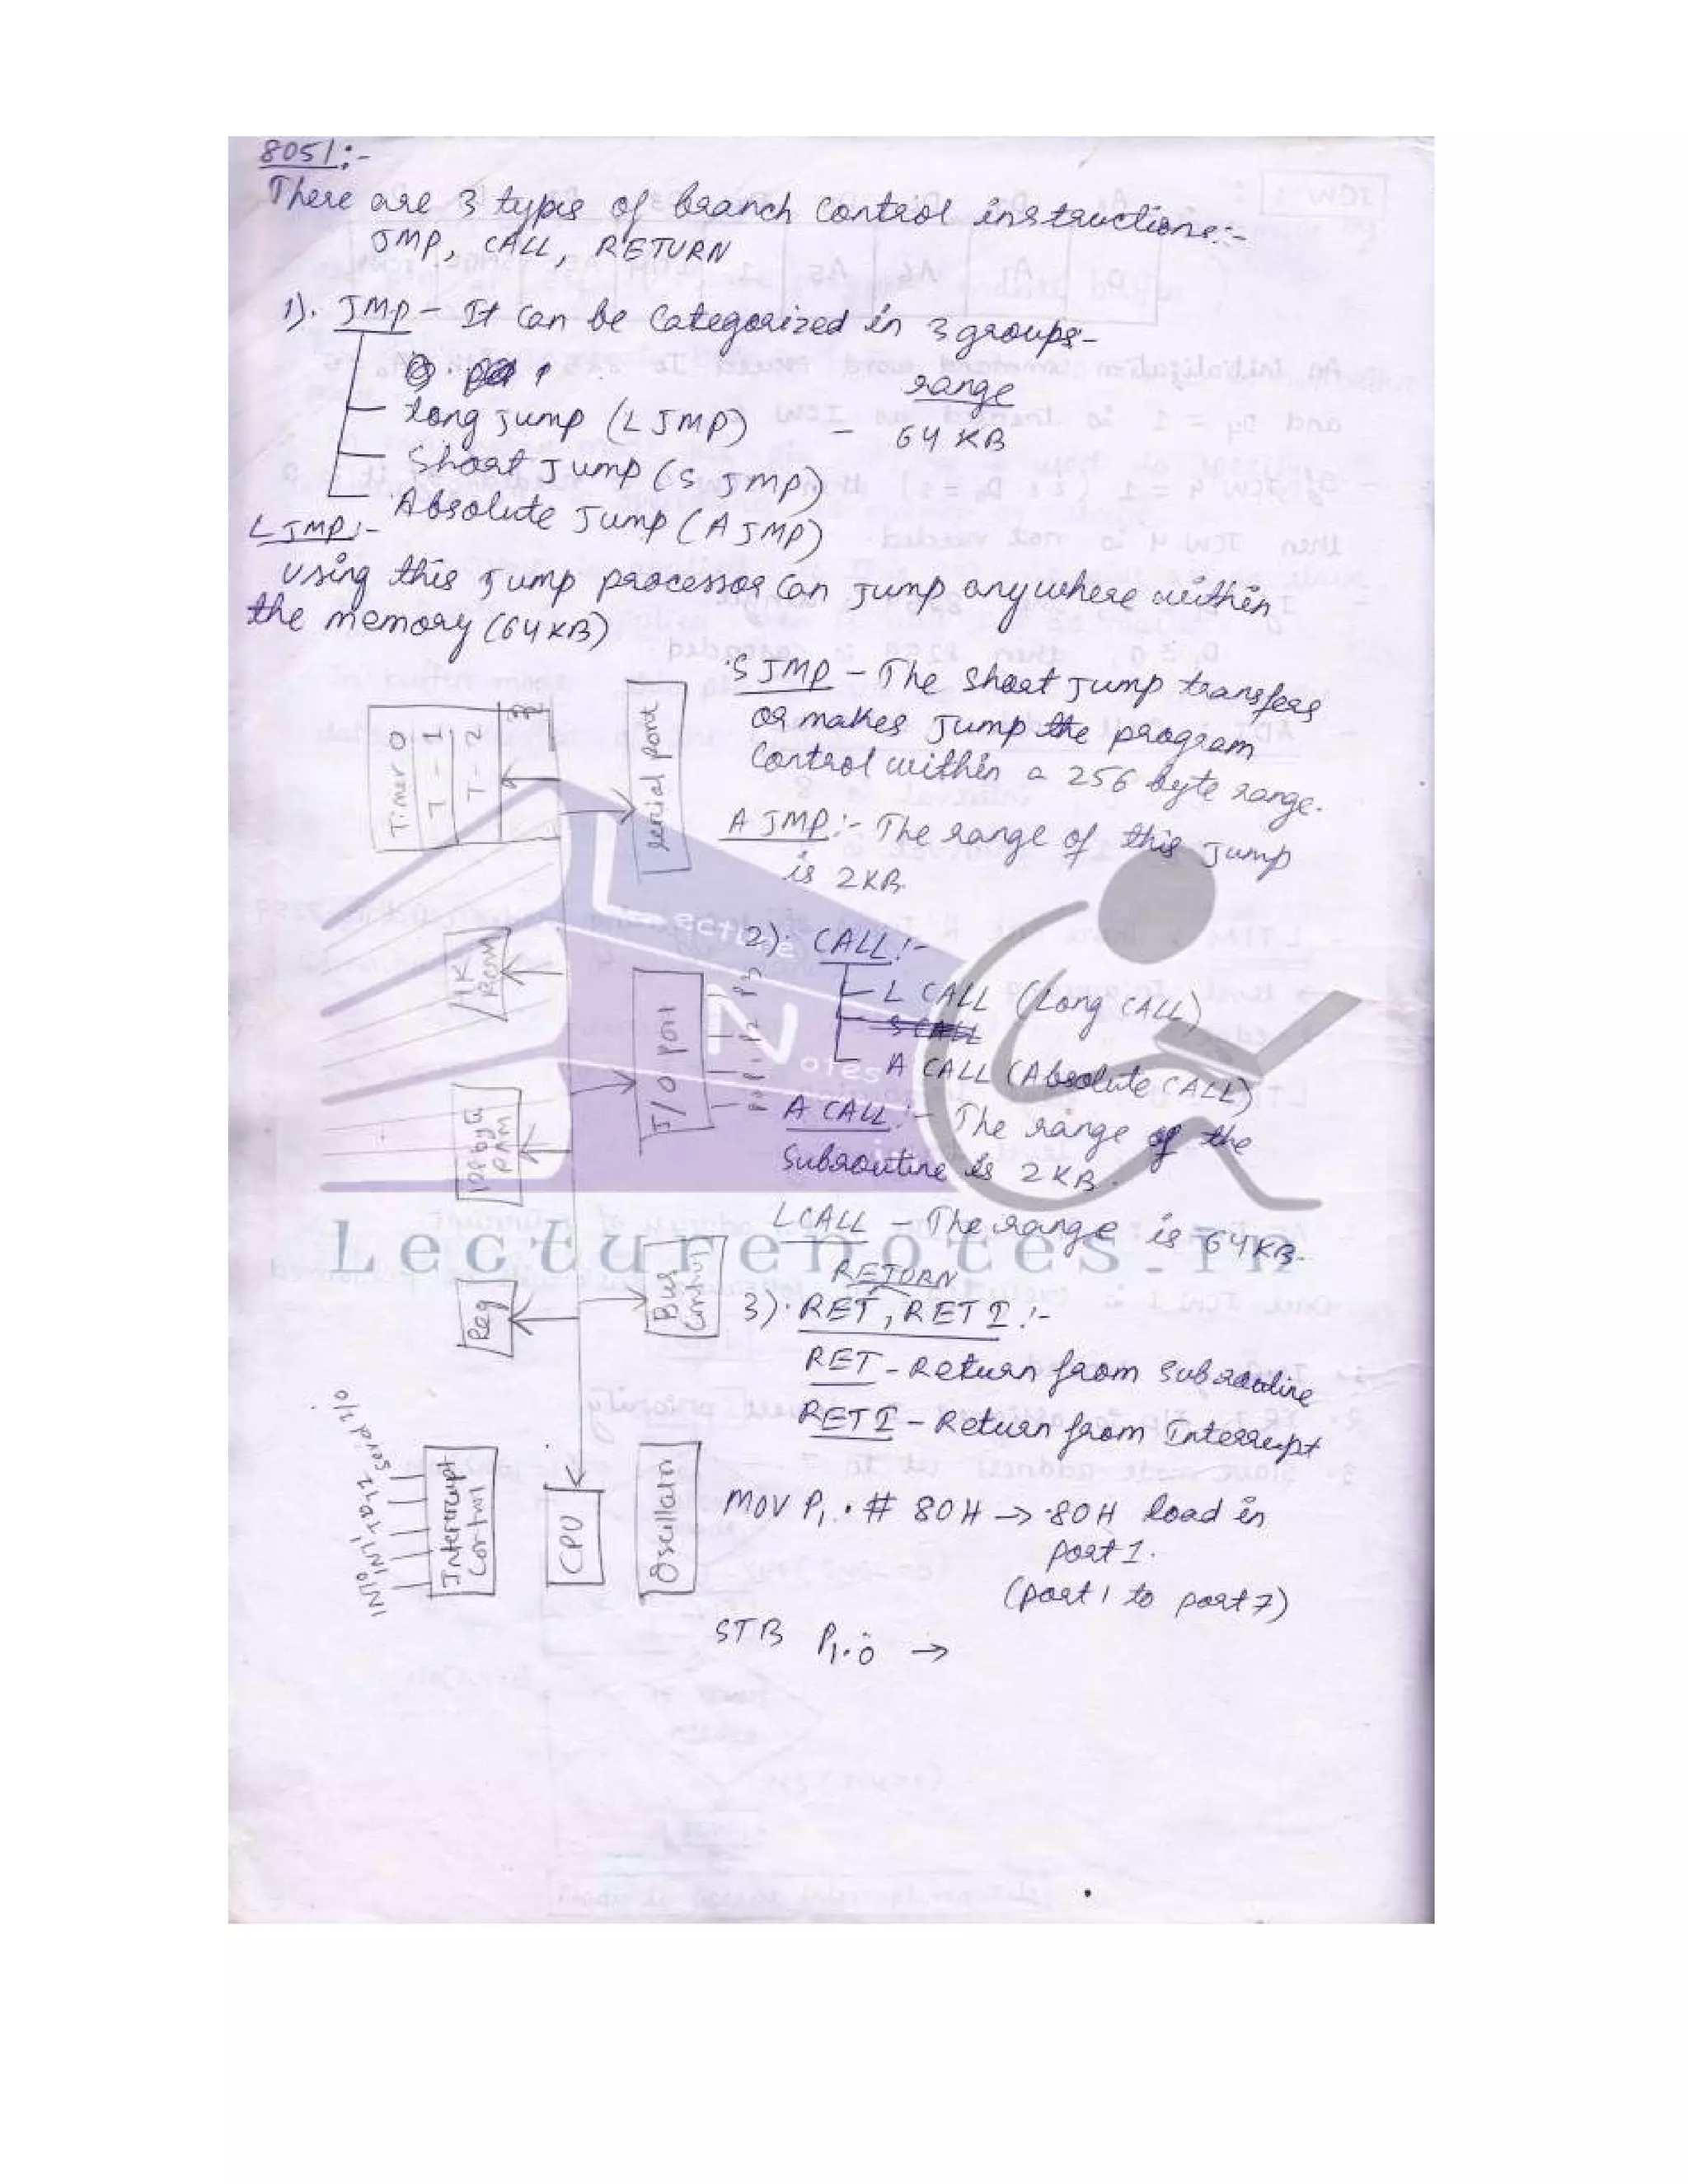 8051:-
There are 3 types of branch control instructions:-
JMP, CALL, RETURN
1). JMP - It can be categorized in 3 groups-
range
Long jump (LJMP) - 64 KB
Short Jump (S JMP)
Absolute Jump (A JMP)
LJMP:-
Using this jump processor can jump anywhere within
the memory (64KB)
SJMP - The short jump transfers
or makes jump the program
control within a 256 byte range.
A JMP:- The range of this jump
is 2KB.
2). CALL:-
L CALL (Long CALL)
SCALL
A CALL (Absolute CALL)
A CALL:- The range of the
subroutine is 2KB.
LCALL - The range is 64KB.
RETURN
3). RET, RETI:-
RET - Return from subroutine
RETI - Return from Interrupt
MOV P1 . # 80H → 80H load in
port 1.
(port 1 to port 7)
STB P1.0 →
Timer 0
T - 1
T - 2
serial port
4K
ROM
I/O port
P0 P1 P2 P3
128byte
RAM
Reg
Bus
Control
Interrupt
Control
INT0 INT1 T0 T2 Serial I/O
CPU
Oscillator
Lecture
Notes
Lecturenotes.in